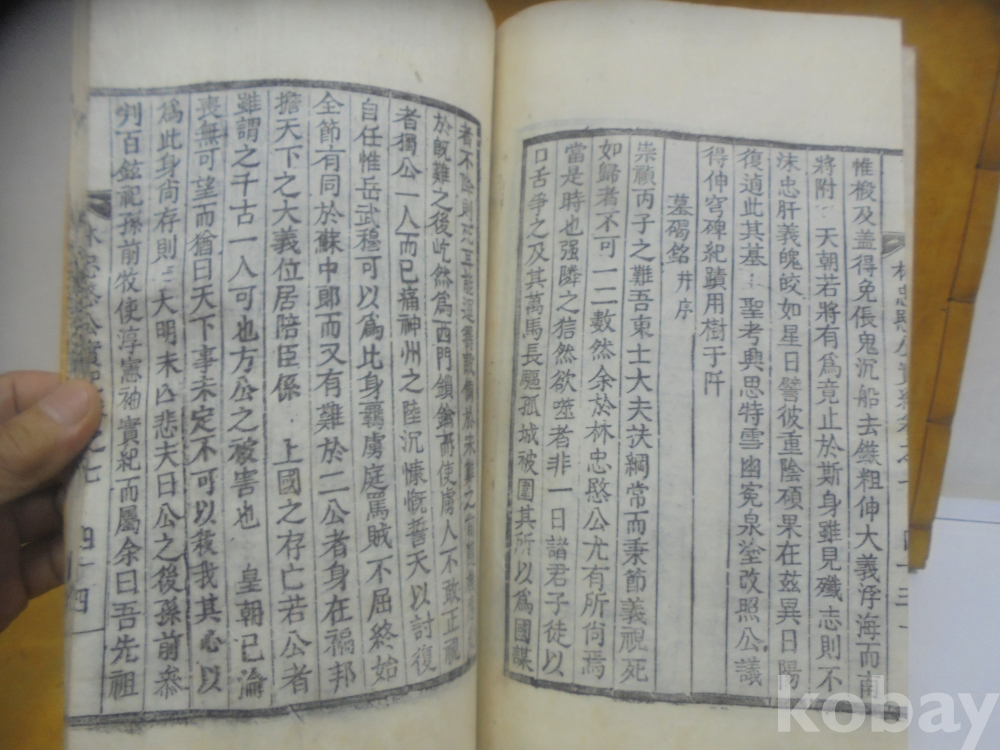 惟椴及蓋得免倀鬼沉船去鐵粗伸大義浮海而南
將附 天朝若將有爲竟止於斯身雖見殲志則不
沬忠肝義魄皎如星日譬彼重陰碩果在玆異日陽
復逌此其基 聖考興思特雪幽寃泉塗改照公議
得伸穹碑紀蹟用樹于阡
墓碣銘幷序
崇禎丙子之難吾東士大夫扶綱常而秉節義視死
如歸者不可一二數然余於林忠愍公尤有所尙焉
當是時也强隣之狺然欲噬者非一日諸君子徒以
口舌爭之及其萬馬長驅孤城被圍其所以爲國謀
者不
於旣難之後屹然爲西門鎖鑰而使虜人不敢正視
者獨公一人而已痛神州之陸沉慷慨誓天以討復
自任惟岳武穆可以爲比身羈虜庭罵賊不屈終始
全節有同於蘇中郞而又有難於二公者身在褊邦
擔天下之大義位居陪臣係 上國之存亡若公者
雖謂之千古一人可也方公之被害也 皇朝已淪
喪無可望而猶曰天下事未定不可以殺我其心以
爲此身尙存則 大明未亡悲夫日公之後孫前叅
判百鉉祀孫前牧使淳憲袖實紀而屬余曰吾先祖
林忠愍公實紀卷之七 四十四
kobay